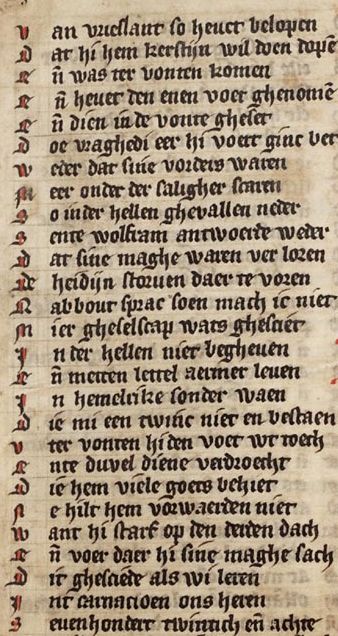 v an vrieslant so hevet belopen
D at hi hem kerstijn wil doen dopē
E n̄ was ter vonten komen
E n̄ hevet den enen voet ghenomē
E n̄ dien in de vonte gheset
D oe vraghedi eer hi voert ginc bet
w eder dat sine vorders waren
M eer onder der saligher scaren
S o inder hellen ghevallen neder
S ente wolfram antwoerde weder
D at sine maghe waren ver loren
De heidijn storven daer te voren
R abbout sprac soen mach ic niet
M ier gheselscap wats ghesciet
I n der hellen niet begheven
E n̄ metten lettel aermer leven
I n hemelrike sonder waen
D ie mi een twint niet en bestaen
v ter vonten hi den voet wt toech
E nte duvel diene verdroecht
D ie hem viele goets behiet
N e hilt hem vorwaerden niet
w ant hi starf op den derden dach
E n̄ voer daer hi sine maghe sach
D it ghesciede als wi leren
I nt carnacioen ons heren
S evenhondert twintich en̄ achte